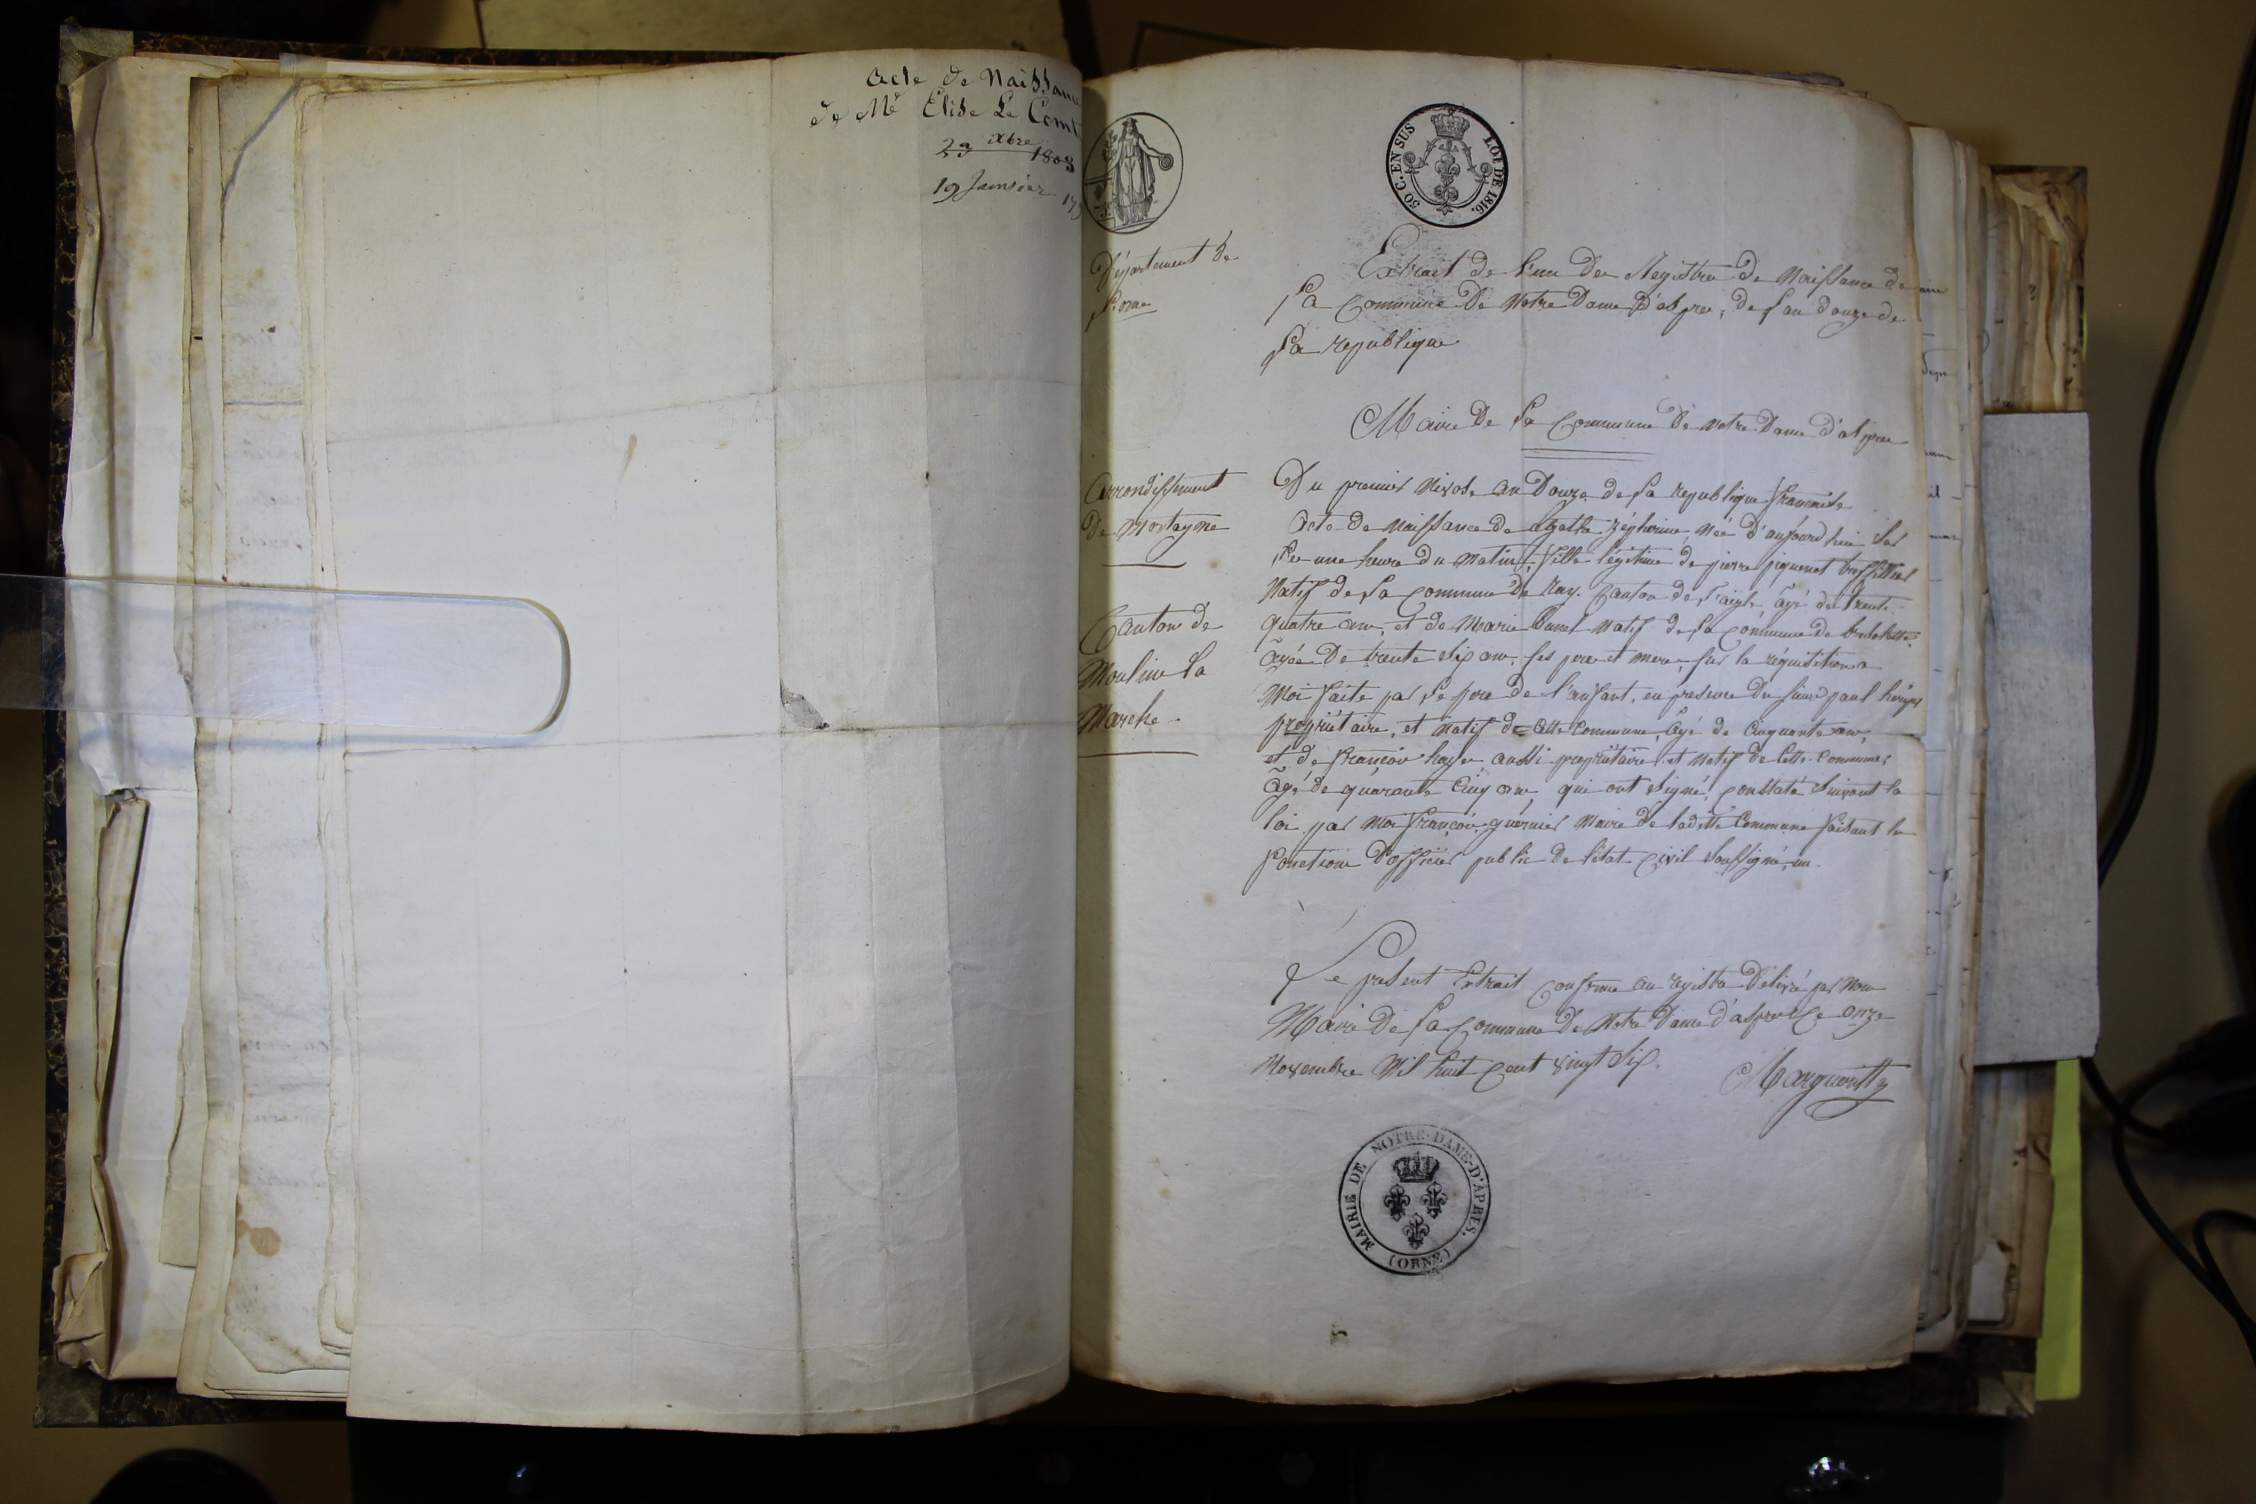 Acte de Naissance
de Me Elise Le Comt
23 xbre 1808
19 Janvier 17
50 C. EN SUS
LOI DE 1816.
Département de
l'orne
Extrait de l'un des Registres de Naissance de
la Commune De Notre Dame D'aspres, de l'an douze de
la republique
Maire De la Commune De Notre Dame d'aspres
Arrondissement
De Mortagne
Canton de
Moulins la
Marche
Du premier Nivose an Douze de la republique francaise
Acte de Naissance de agathe Zépherine, Née d'aujourd'hui sur
les une heure du matin, fille légitime de pierre piquenot
Natif de la commune De Ray. Canton de l'aigle, âgé de trente
quatre ans, et de Marie Natif de la commune de
âgée De trente six ans, ses pere et mere, sur la réquisition a
Moi faite par le pere de l'anfant, en presence Du sieur paul
propriétaire, et Natif de Cette Commune, âgé de Cinquante ans,
et de françois aussi propriétaire et Natif de Cette Commune
âgé de quarante Cinq ans, qui ont signé, Constaté suivant la
loi par Moi françois guernier Maire de ladite Commune faisant les
fonctions D'officier public De l'état Civil soussigné
Le present Extrait Conforme au registre Délivré par Nous
Maire De la Commune De Notre Dame d'aspres Ce onze
Novembre Mil huit Cent vingt six.
MAIRIE DE NOTRE-DAME-D'APRES.
(ORNE)